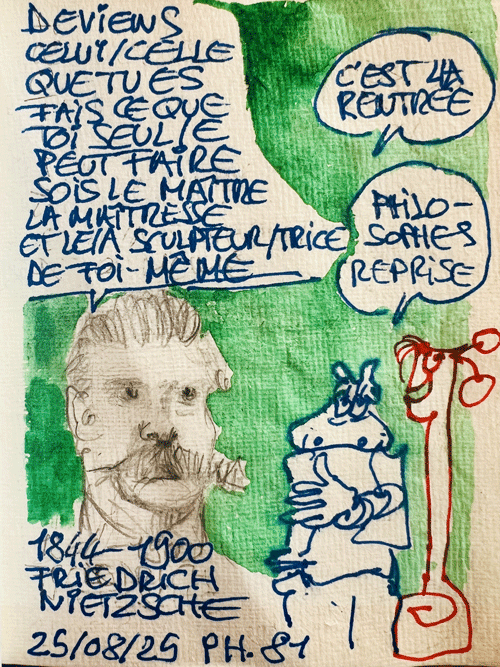 DEVIENS
CELUI/CELLE
QUE TU ES
FAIS CE QUE
TOI SEUL/E
PEUT FAIRE
SOIS LE MAITRE
LA MAITRESSE
ET LE/A SCULPTEUR/TRICE
DE TOI-MÊME
C'EST LA
RENTRÉE
PHILO-
SOPHES
REPRISE
1844-1900
FRIEDRICH
NIETZSCHE
25/08/25 PH. 81